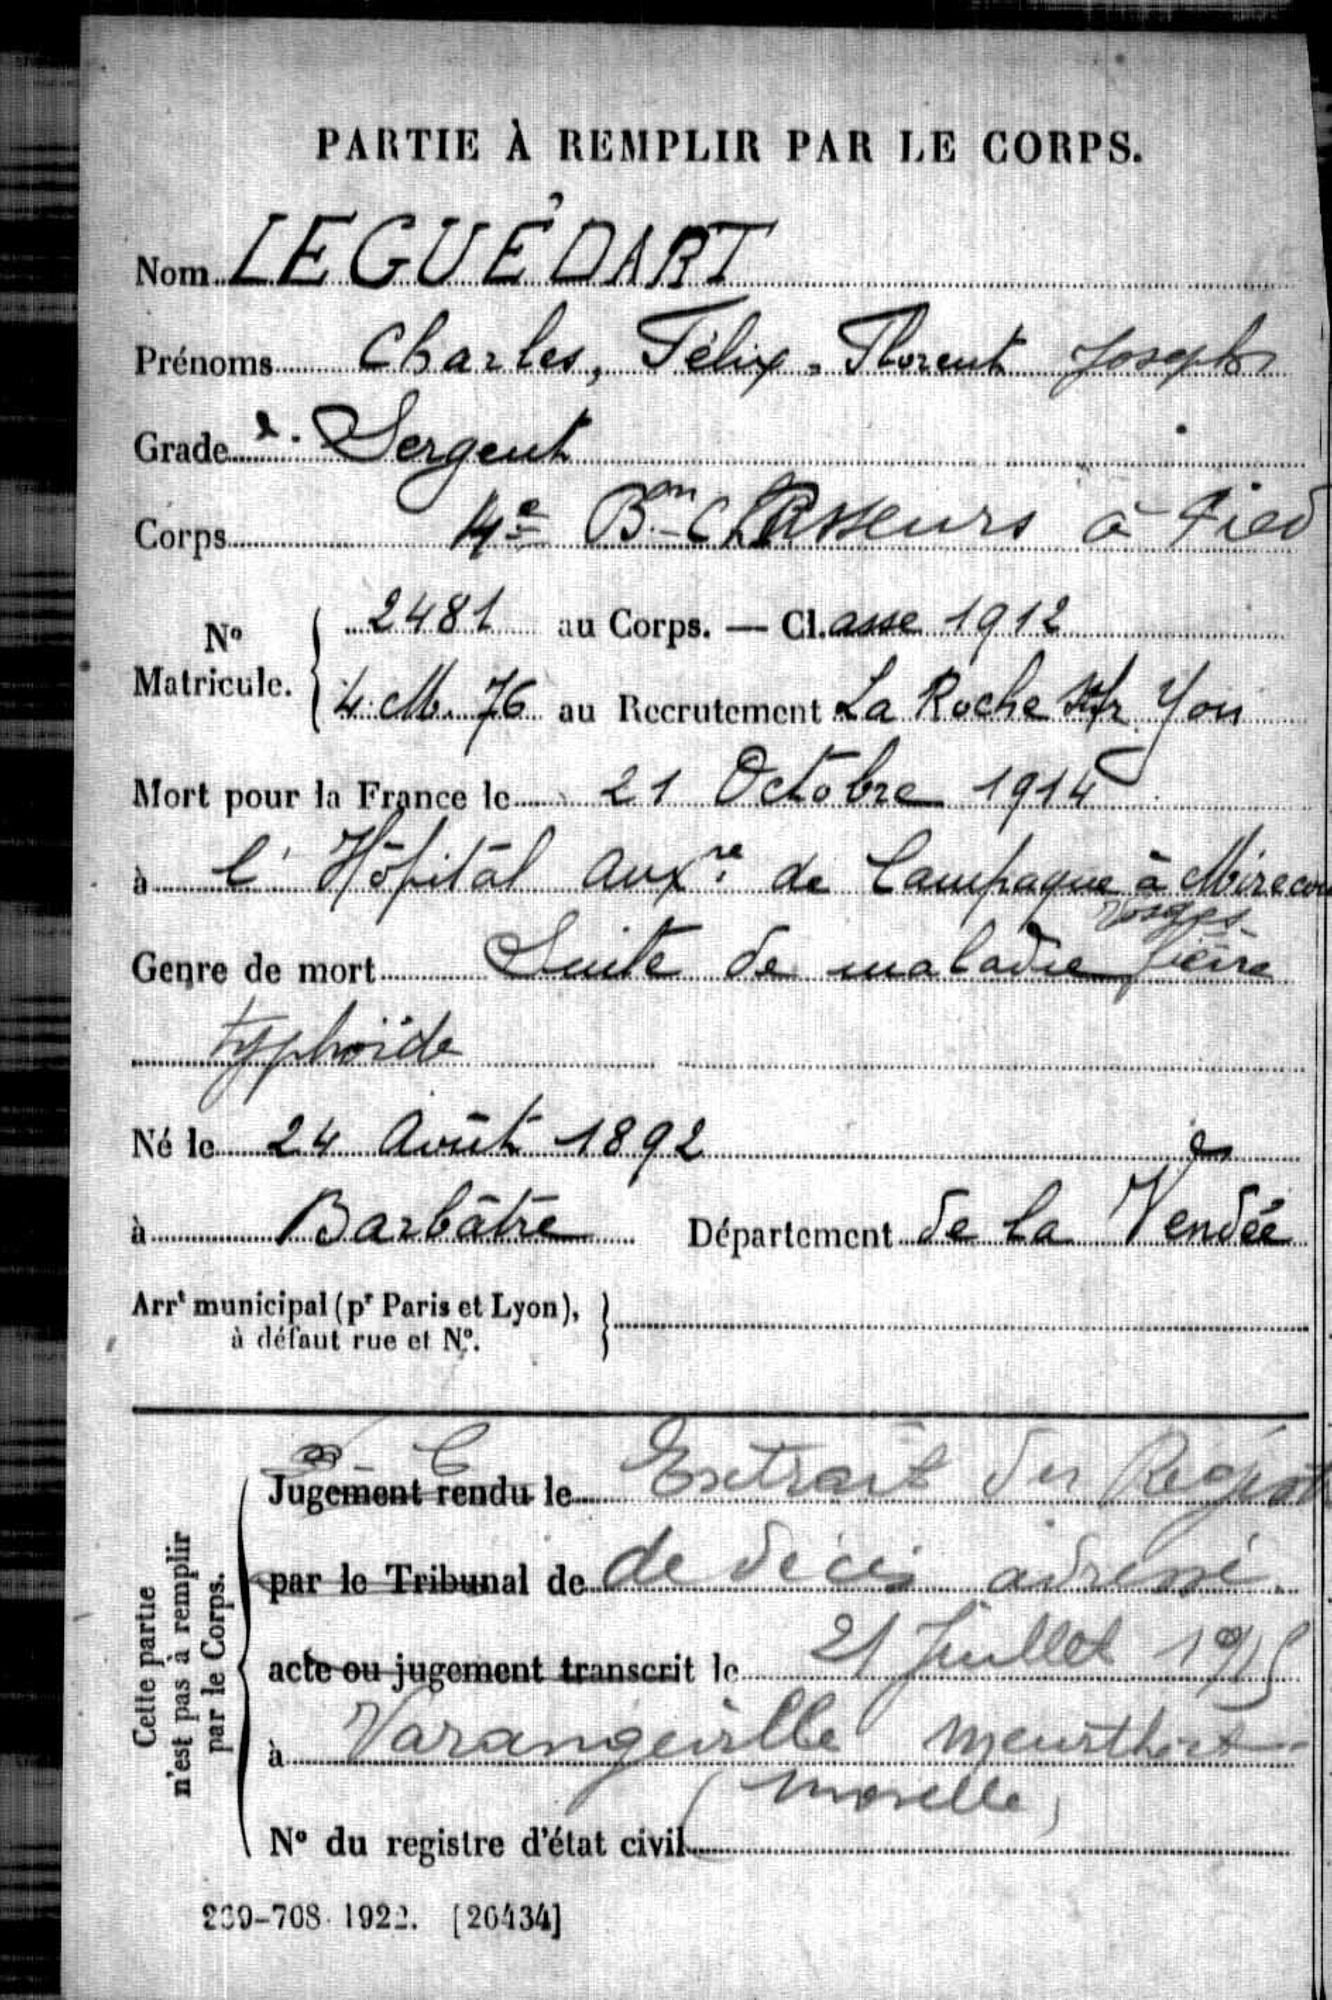 PARTIE À REMPLIR PAR LE CORPS.
Nom LEGUÉDART
Prénoms Charles, Félix, Florent Joseph
Grade Sergent
Corps 4e Bon Chasseurs à Pied
No Matricule. 2481 au Corps. — Cl.asse 1912
4. M. 76 au Recrutement La Roche sur Yon
Mort pour la France le 21 Octobre 1914
à l'Hôpital Auxre de Campagne à Mirecou
Vosges
Genre de mort Suite de maladie fièvre
typhoïde
Né le 24 Août 1892
à Barbâtre Département de la Vendée
Arrt municipal (pr Paris et Lyon),
à défaut rue et No.
Cette partie
n'est pas à remplir
par le Corps.
Jugement rendu le Extrait du Regist
par le Tribunal de de décès adressé
acte ou jugement transcrit le 21 Juillet 1915
à Varangeville Meurthe et
(Moselle)
No du registre d'état civil
239-708. 1922. [26434]